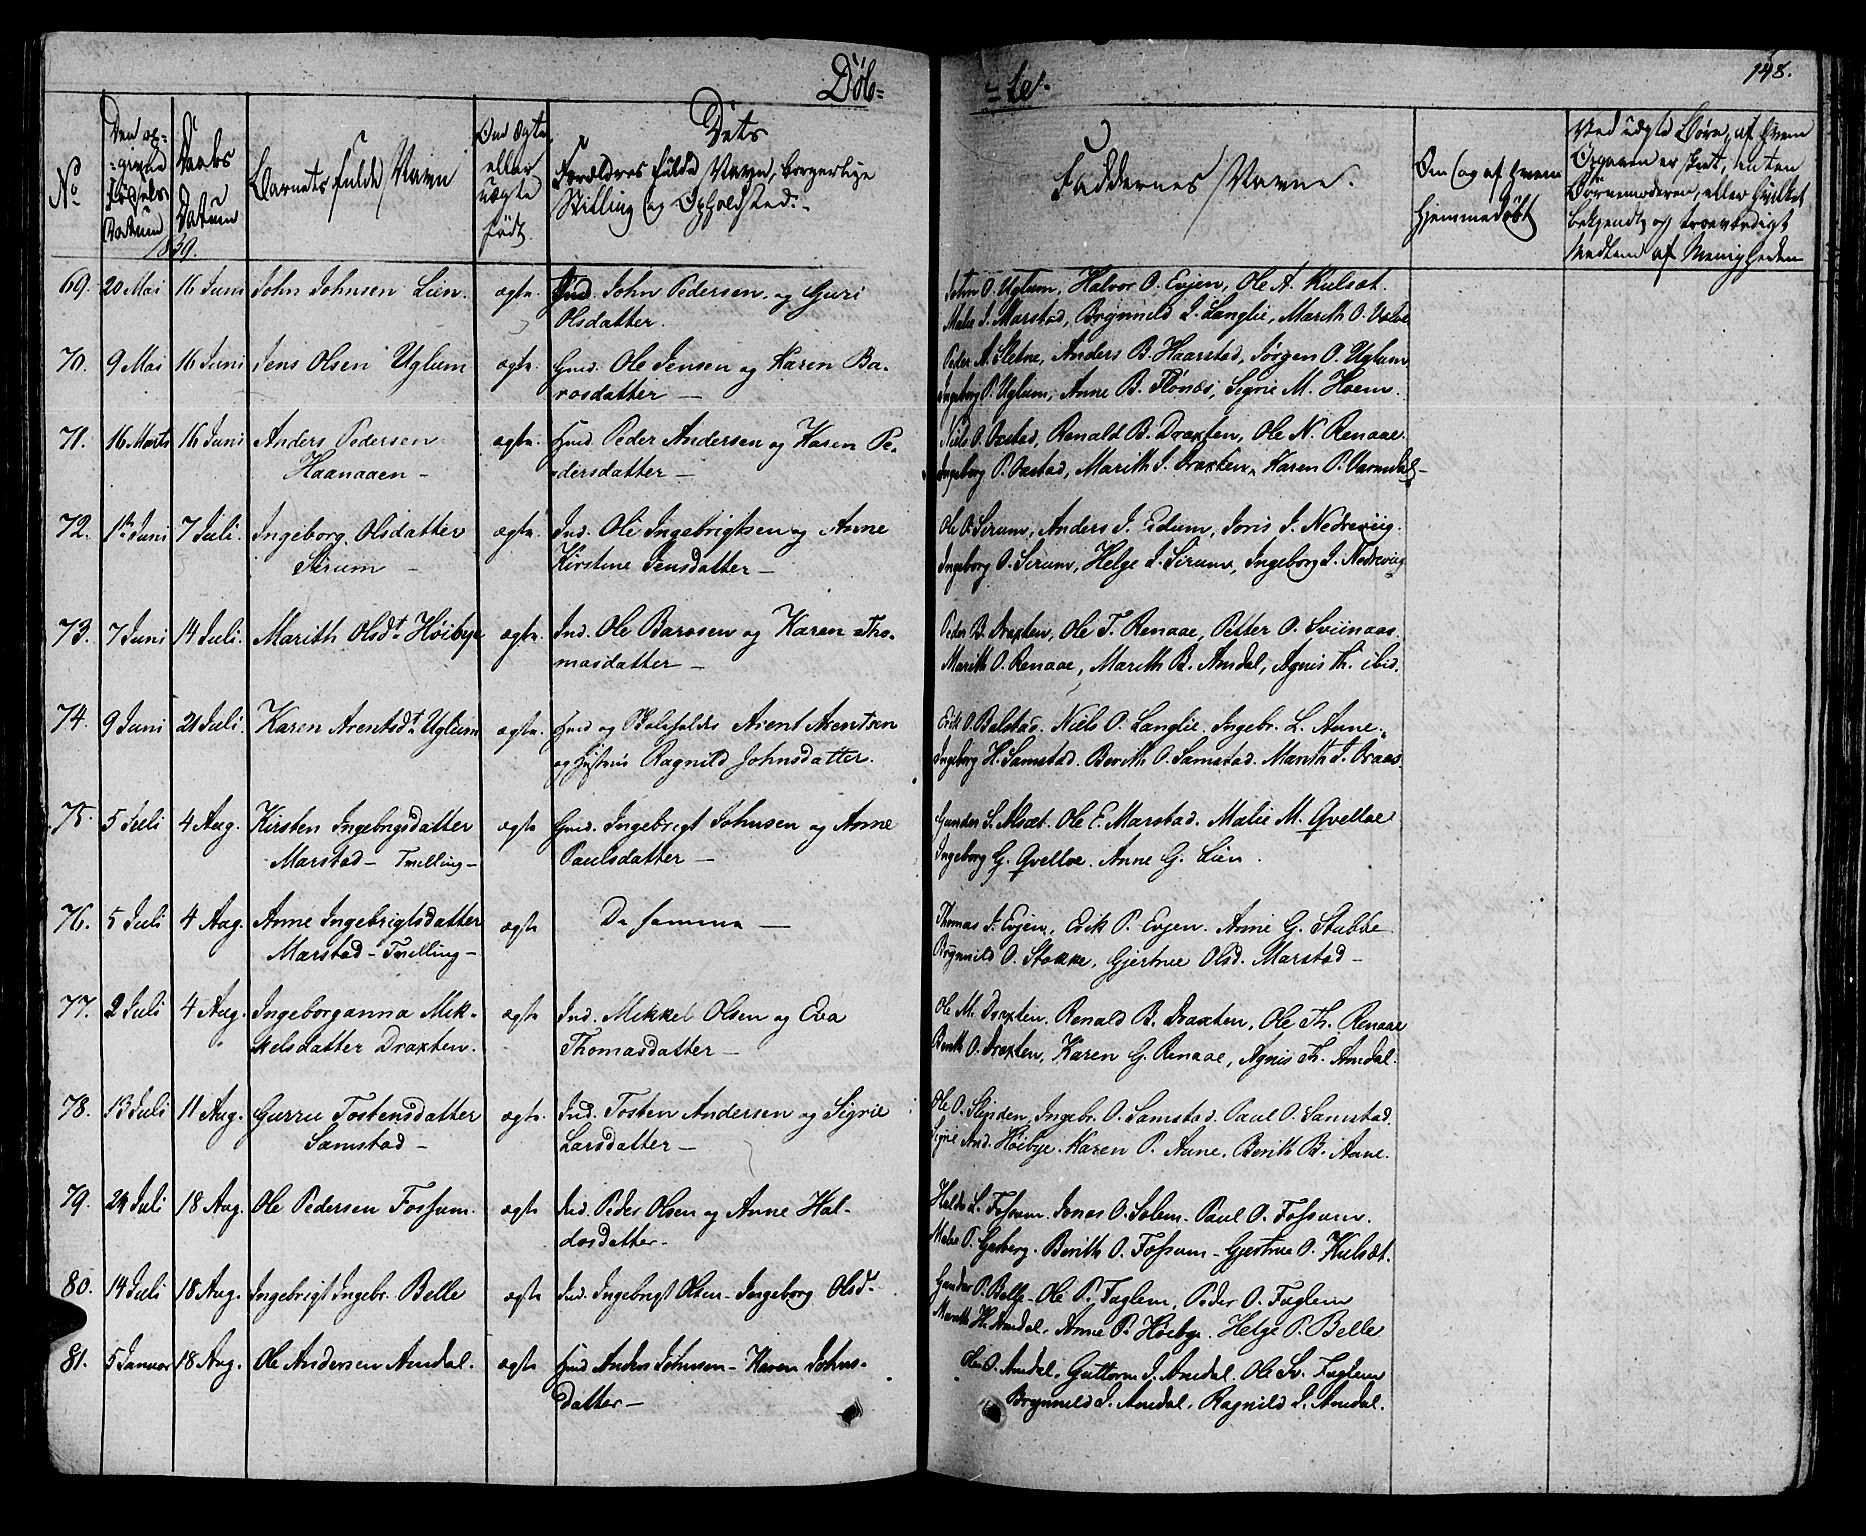 Døb-
-te.
148.
No
Den op-
-givne
Fødsels-
Datum
1839.
Daabs
Datum
Barnets fulde Navn
Om Ægte
eller
uægte
født.
Dets
Forældres fulde Navn, borgerlige
Stilling og Opholdsted.
Faddernes Navne.
Om og af hvem
hjemmedøbt
Ved uægte Børn, af hvem
Opgaven er skeet, enten
Børnemoderen, eller hvilket
bekjendt og troeværdigt
Medlem af Menigheden
69. 20 Mai 16 Juni John Johnsen Lien. ægte. Ind. John Pedersen og Guri
Olsdatter.
John O. Uglum, Halvor O. Evjen, Ole A. Kulsæt.
Malie J. Marstad, Brynnild L. Langlie, Marith O.
70. 9 Mai 16 Juni Jens Olsen Uglum ægte. Gmd. Ole Jensen og Karen Ba-
rosdatter —
Peder A. Sletne, Anders B. Haarstad, Jørgen O. Uglum
Ingeborg P. Uglum, Anne B. Flønæs, Sigrie M. Hoem.
71. 16 Marts 16 Juni Anders Pedersen ægte. Hmd. Peder Andersen og Karen Pe-
Haanaaen —
dersdatter —
Niels O. Oxstad, Renald B. Draxten, Ole N. Renaae.
Ingeborg P. Oxstad, Marith J. Draxten, Karen P. Varmdal
72. 1ste Juni 7 Juli. Ingeborg Olsdatter ægte. Ind. Ole Ingebrigtsen og Anne
Sirum —
Kirstine Jensdatter —
Ole O. Sirum, Anders J. Eidum, Joris J. Nedreviig.
Ingeborg O. Sirum, Helge J. Sirum, Ingeborg J. Nedreviig
73. 7 Juni 14 Juli. Marith Olsdt Høibye ægte. Ind. Ole Barosen og Karen Tho-
masdatter —
Peder B. Draxten, Ole T. Renaae, Petter O. Sviinaas.
Marith O. Renaae, Marith B. Amdal, Agnis Th. ibid.
74. 9 Juni 21 Juli. Karen Arentsdt Uglum ægte. Hmd og Skoleholder Arent Arentsen
og Hustrue Ragnild Johnsdatter.
Erik O. Balstad. Niels O. Langlie. Ingebr. L. Aune.
Ingeborg H. Samstad. Berith O. Samstad. Marith T. Draas.
75. 5 Juli 4 Aug. Kirsten Ingebrigsdatter ægte Gmd. Ingebrigt Johnsen og Anne
Marstad — Tvilling —
Paulsdatter —
Gunder S. Alsæt. Ole E. Marstad. Malie M. Qvelloe
Ingeborg G. Qvelloe. Anne G. Lien.
76. 5 Juli 4 Aug. Anne Ingebrigtsdatter ægte De samme —
Marstad — Tvilling —
Thomas J. Evjen, Erik P. Evjen. Anne G. Stubbe
Brynnild O. Stokke, Gjertrue Olsd. Marstad —
77. 2 Juli 4 Aug. Ingeborganna Mik- ægte Ind. Mikkel Olsen og Eva
kelsdatter Draxten.
Thomasdatter —
Ole M. Draxten. Renald B. Draxten, Ole Th. Renaae
Berith O. Draxten, Karen G. Renaae, Agnis Th. Amdal.
78. 13 Juli 11 Aug. Gurru Tostensdatter ægte. Ind. Tosten Andersen og Sigrie
Samstad —
Larsdatter —
Ole O. Slinden, Ingebr. O. Samstad. Paul O. Samstad.
Sigrie And. Høibye. Karen P. Aune. Berith B. Aune.
79. 24 Juli 18 Aug. Ole Pedersen Fossum. ægte Ind. Peder Olsen og Anne Hal-
dosdatter —
Haldo L. Fossum. Jonas O. Solem. Paul O. Fossum.
Malie P. Garberg. Berith O. Fossum — Gjertrue O. Kulsæt.
80. 14 Juli 18 Aug. Ingebrigt Ingebr. Belle ægte Ind. Ingebrigt Olsen — Ingeborg Olsd.
Gunder P. Belle — Ole P. Fuglem, Peder O. Fuglem
Marith H. Amdal, Anne P. Høibye. Helge P. Belle
81. 5 Januar 18 Aug. Ole Andersen Amdal. ægte Hmd Anders Johnsen — Karen Johns-
datter —
Ole O. Amdal, Guttorm J. Amdal. Ole Sv. Fuglem
Brynnild J. Amdal. Ragnild J. Amdal.